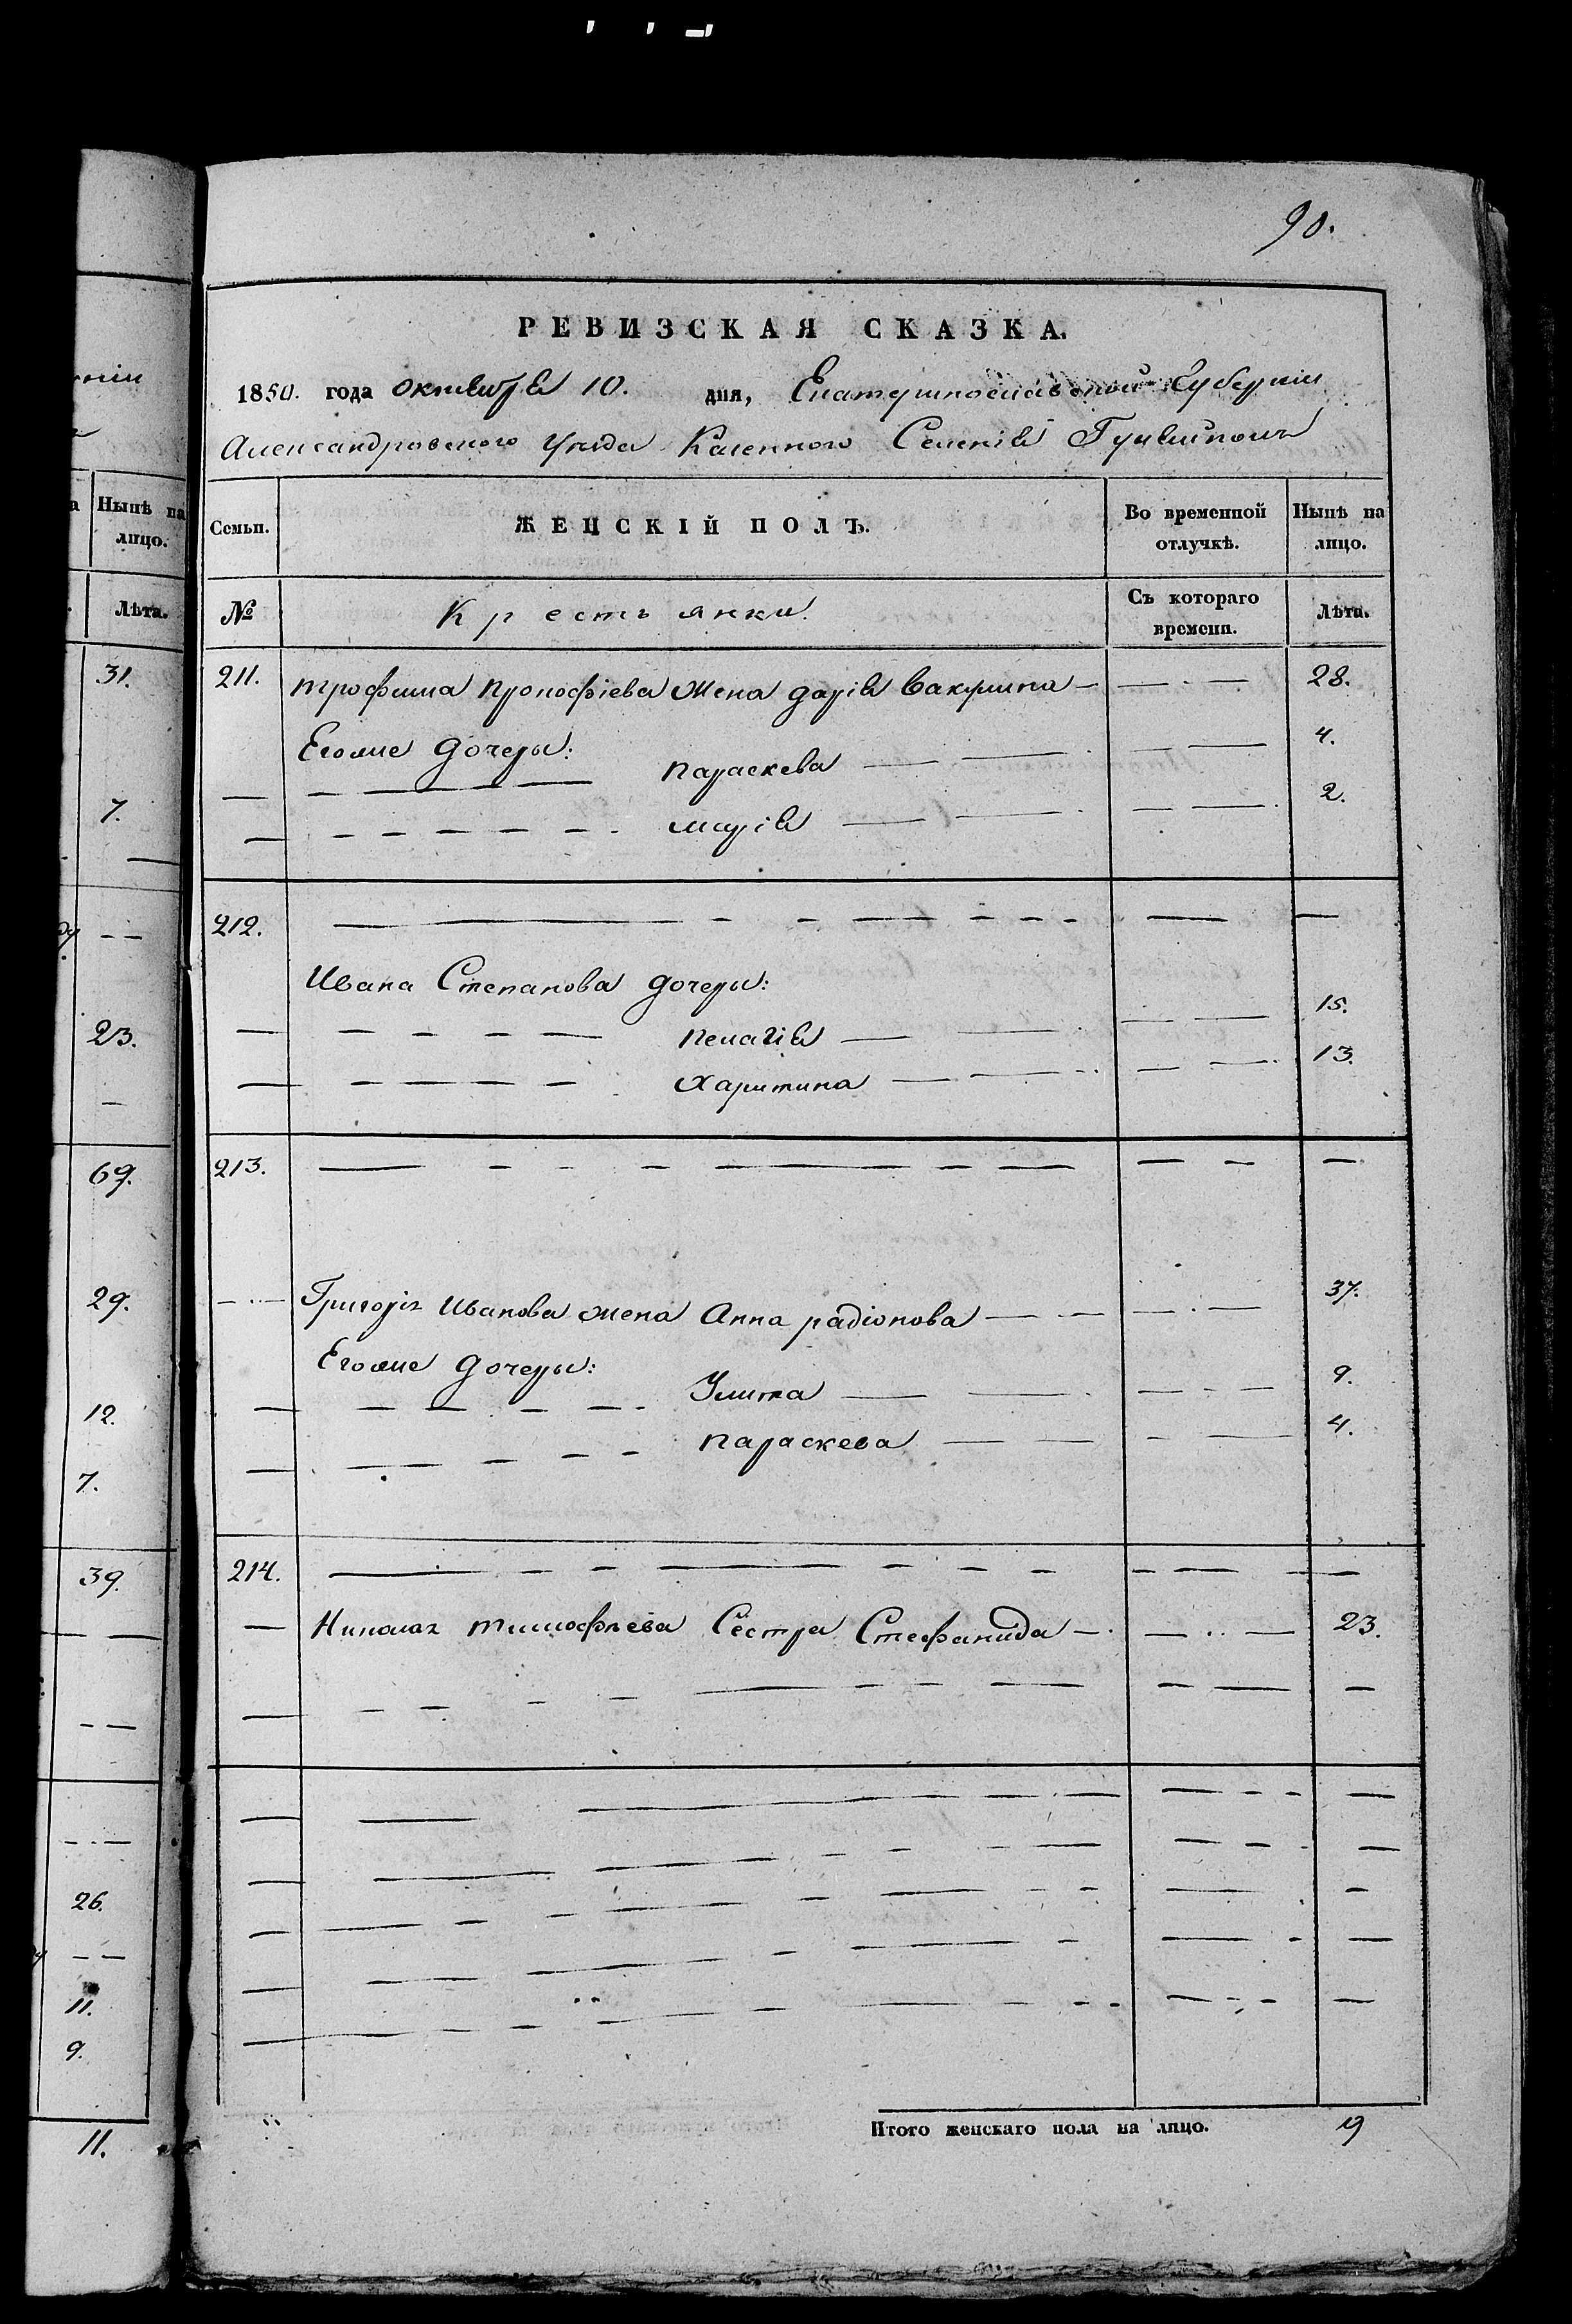 90.
РЕВИЗСКАЯ СКАЗКА.
1850. года октября 10. дня, Екатеринославской Губернии
Александровского уезда Казенного Селения Гуляйполь
Семьи. ЖЕНСКІЙ ПОЛЪ. Во временной отлучкѣ. Нынѣ на лицо.
№ Крестьянки. Съ котораго времени. Лѣта.
211. трофима прокофіева жена дарія Вакулина 28.
Егоже дочеры: 4.
параскева 2.
марія
212.
Ивана Степанова дочеры: 15.
пелагія 13.
Харитина
213.
Григорія Иванова жена Анна радіонова 37.
Егоже дочеры:
Улита 9.
параскева 4.
214.
Николая тимофѣева Сестра Стефанида 23.
Итого женскаго пола на лицо. 9
Нынѣ на лицо.
Лѣта.
31.
7.
23.
69.
29.
12.
7.
39.
26.
11.
9.
11.